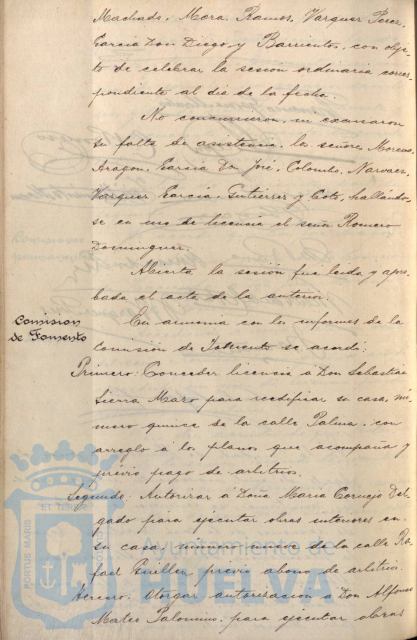 Machado, Mora, Ramos, Vazquez Perez,
Garcia Don Diego y Barrientos, con obje-
to de celebrar la sesion ordinaria corres-
pondiente al dia de la fecha.
No concurrieron, ni excusaron
su falta de asistencia, los señores Moreno
Aragon, Garcia Dn José, Colombo, Narvaez,
Vazquez Garcia, Gutierrez y Coto, hallando-
se en uso de licencia el señor Romero
Dominguez.
Abierta la sesión fue leida y apro-
bada el acta de la anterior.
Comision
de Fomento
En armonia con los informes de la
comisión de Fomento se acordó:
Primero: Conceder licencia á Don Sebastian
Sierra Mazo para reedificar su casa, nu-
mero quince de la calle Palma, con
arreglo á los planos que acompaña y
prévio pago de arbitrios.
Segundo: Autorizar á Doña Maria Cornejo Del-
gado para ejecutar obras interiores en
su casa, numero once de la calle Ra-
fael Guillen, previo abono de arbitrios.
Tercero: Otorgar autorizacion á Don Alfonso
Mateo Palomino, para ejecutar obras
PORTUS MARIS
ET TERRÆ
CUSTODIA
Ayuntamiento de
HUELVA